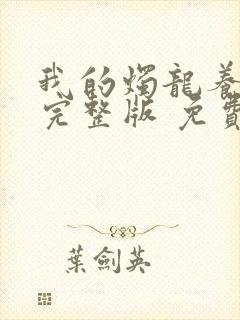 我的燭龍養
完整版 免費
葉劍英